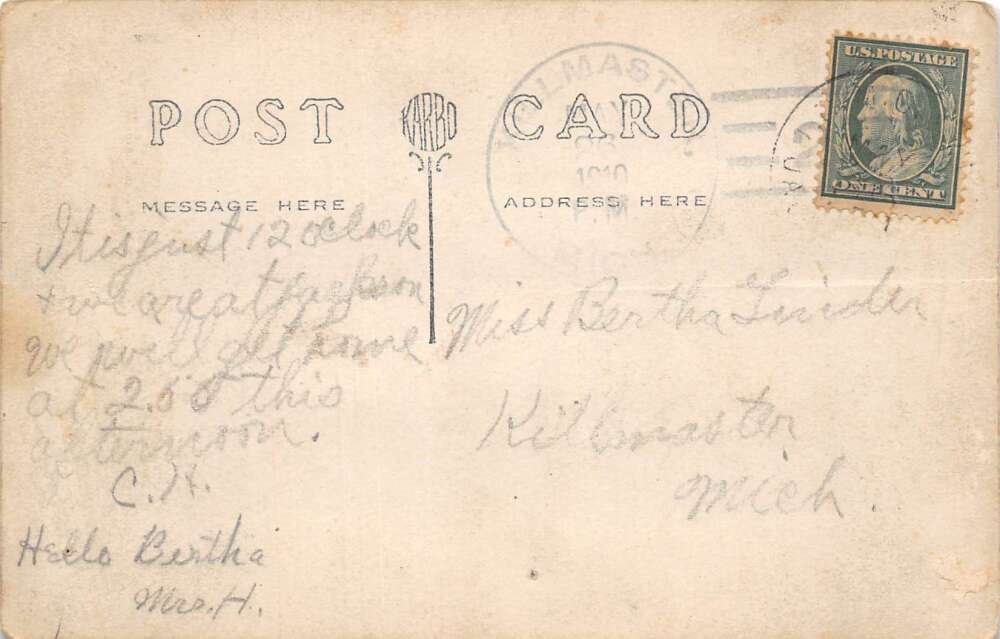 POST CARD
KARBO
MESSAGE HERE
ADDRESS HERE
U.S. POSTAGE
ONE CENT
1910
It is gust 12 oclock
+ we are at Jackson
we will get home
at 2.50 this
afternoon.
C. H.
Hello Bertha
Mrs. H.
Miss Bertha Linder
Killmaster
Mich.